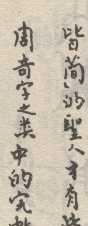 皆简的聖人才有
周奇字之类中的完